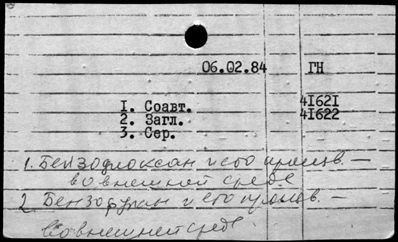 06.02.84 ГН
1. Соавт. 41621
2. Загл. 41622
3. Сер.
1. Бензодиоксан и его произв. –
во внешней среде
2 Бензофуран и его произв. –
Во внешней среде.